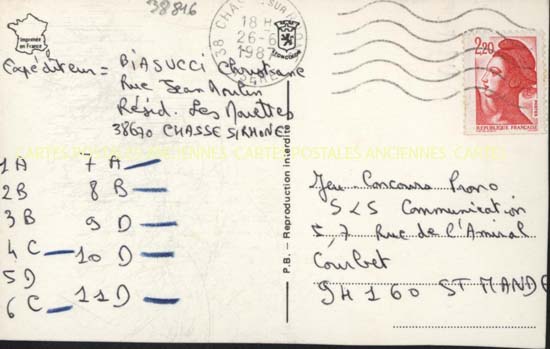 38816
Imprimée
en France
38 CHASSE SUR
18 H
26-6
198
2,20
POSTES
REPUBLIQUE FRANÇAISE
Expéditeur = BIASUCCI Christiane
Rue Jean Moulin
Résid. Les Mouettes
38670 CHASSE S/RHONE
CARTES POSTALES ANCIENNES
1A
2B
3B
4C
5D
6C
7A
8B
9D
10D
11D
P.B. - Reproduction interdite
Jeu Concours Prono
SLS Communication
5,7 Rue de l'Amiral
Courbet
94160 ST MANDE